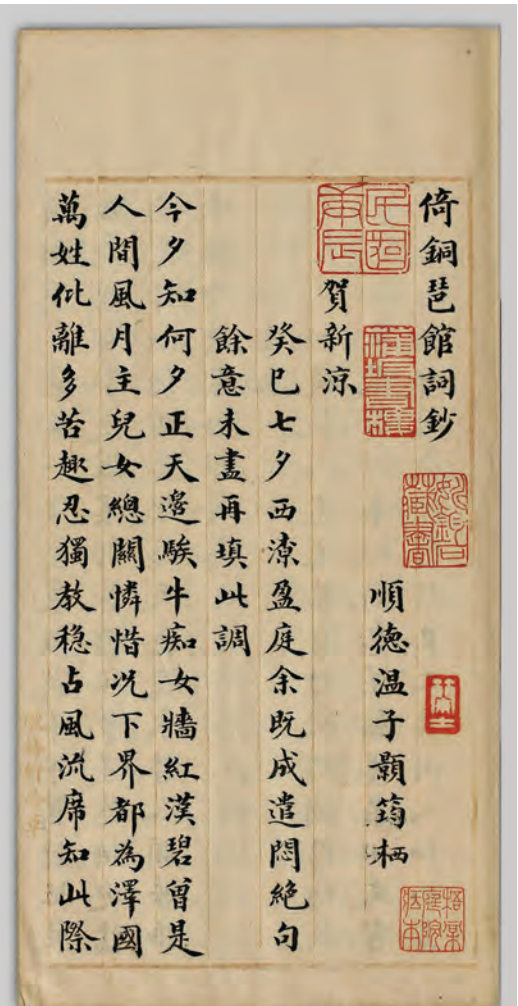 倚銅琶館詞鈔
順德温子顥筠栖
賀新涼
癸巳七夕西潦盈庭余既成遣悶絕句
餘意未盡再填此調
今夕知何夕正天邊騃牛痴女牆紅漢碧曾是
人間風月主兒女總關憐惜况下界都為澤國
萬姓仳離多苦趣忍獨教穏占風流席知此際